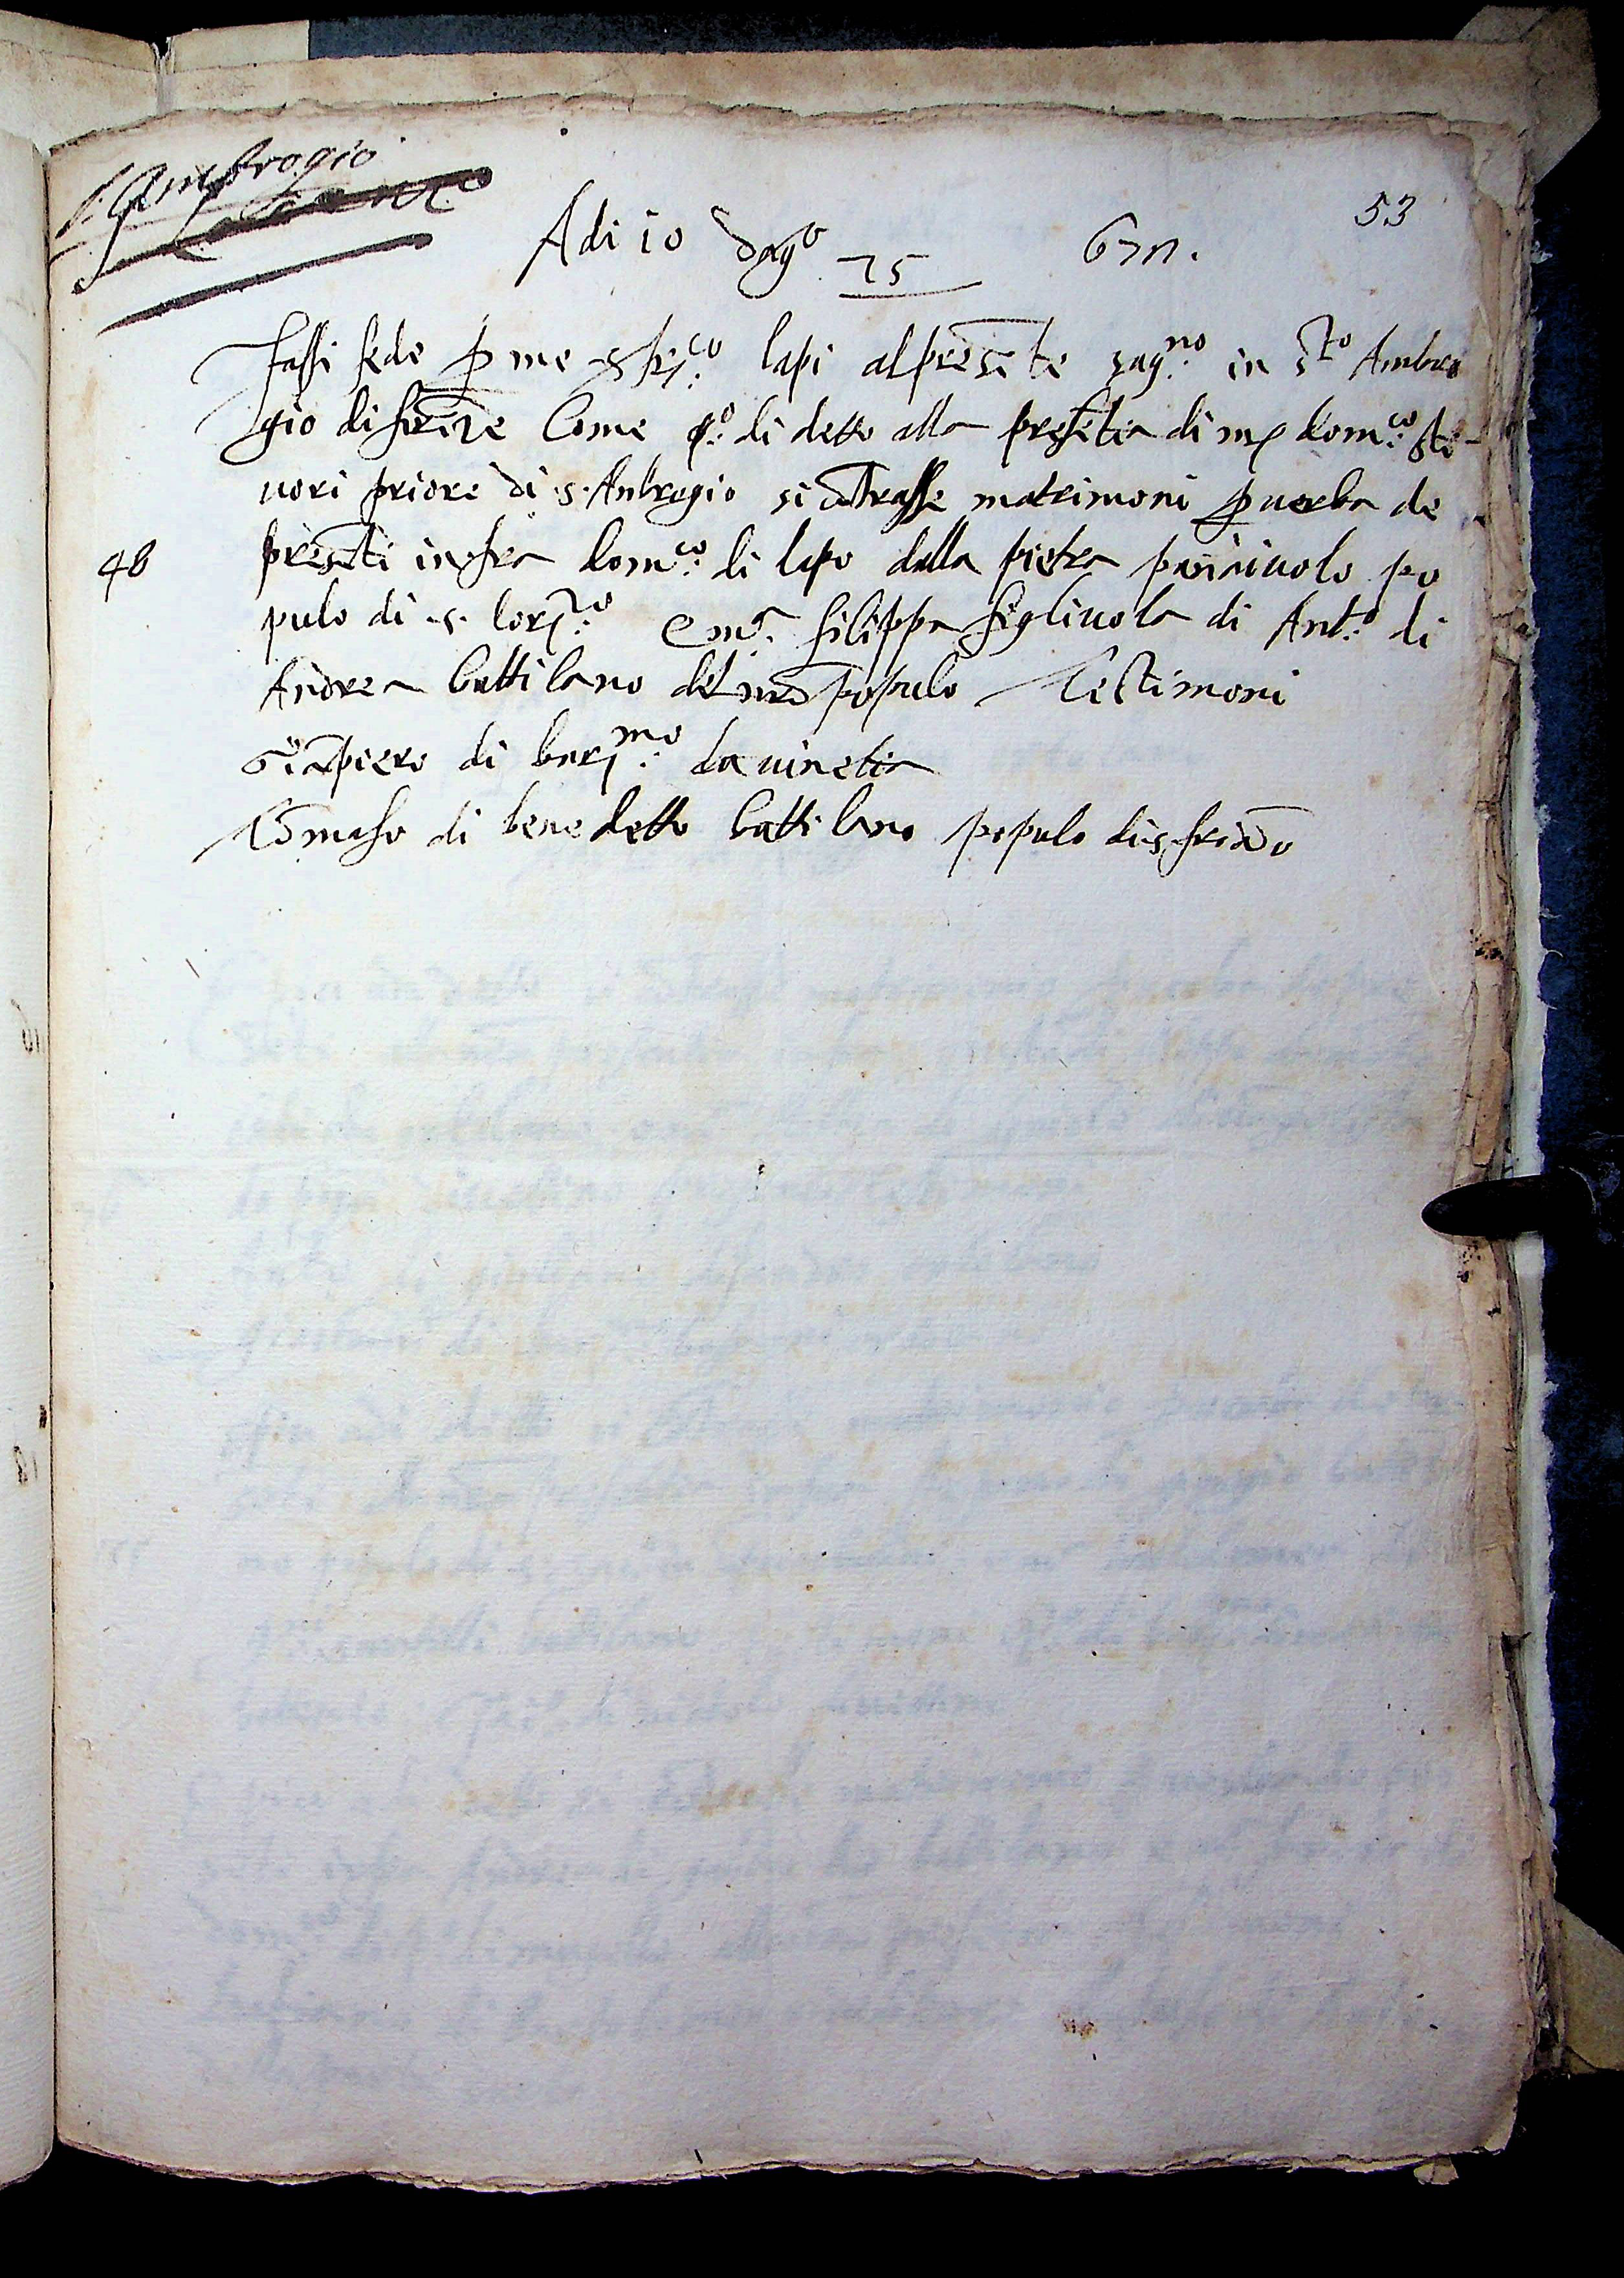 S. Ambrogio
53
Adi 10 dagº 75
Fassi fede p me s frcº lapi al presēte sagno in sto Ambro
gio di firēze Come qº. di detto alla presētia di m domco
uori priore di .s. Anbrogio si cōtrasse matrimoni p uerba de
48
presēti infra domco di lapo dalla pietra paniaiuolo po
pulo di .s. lorzo e mª filippa figliuola di Antº di
Andrea battilano del nrō populo Testimoni
Giāpiero di barmo da uinetia
Tōmaso di benedetto battilano populo di .s. friāo